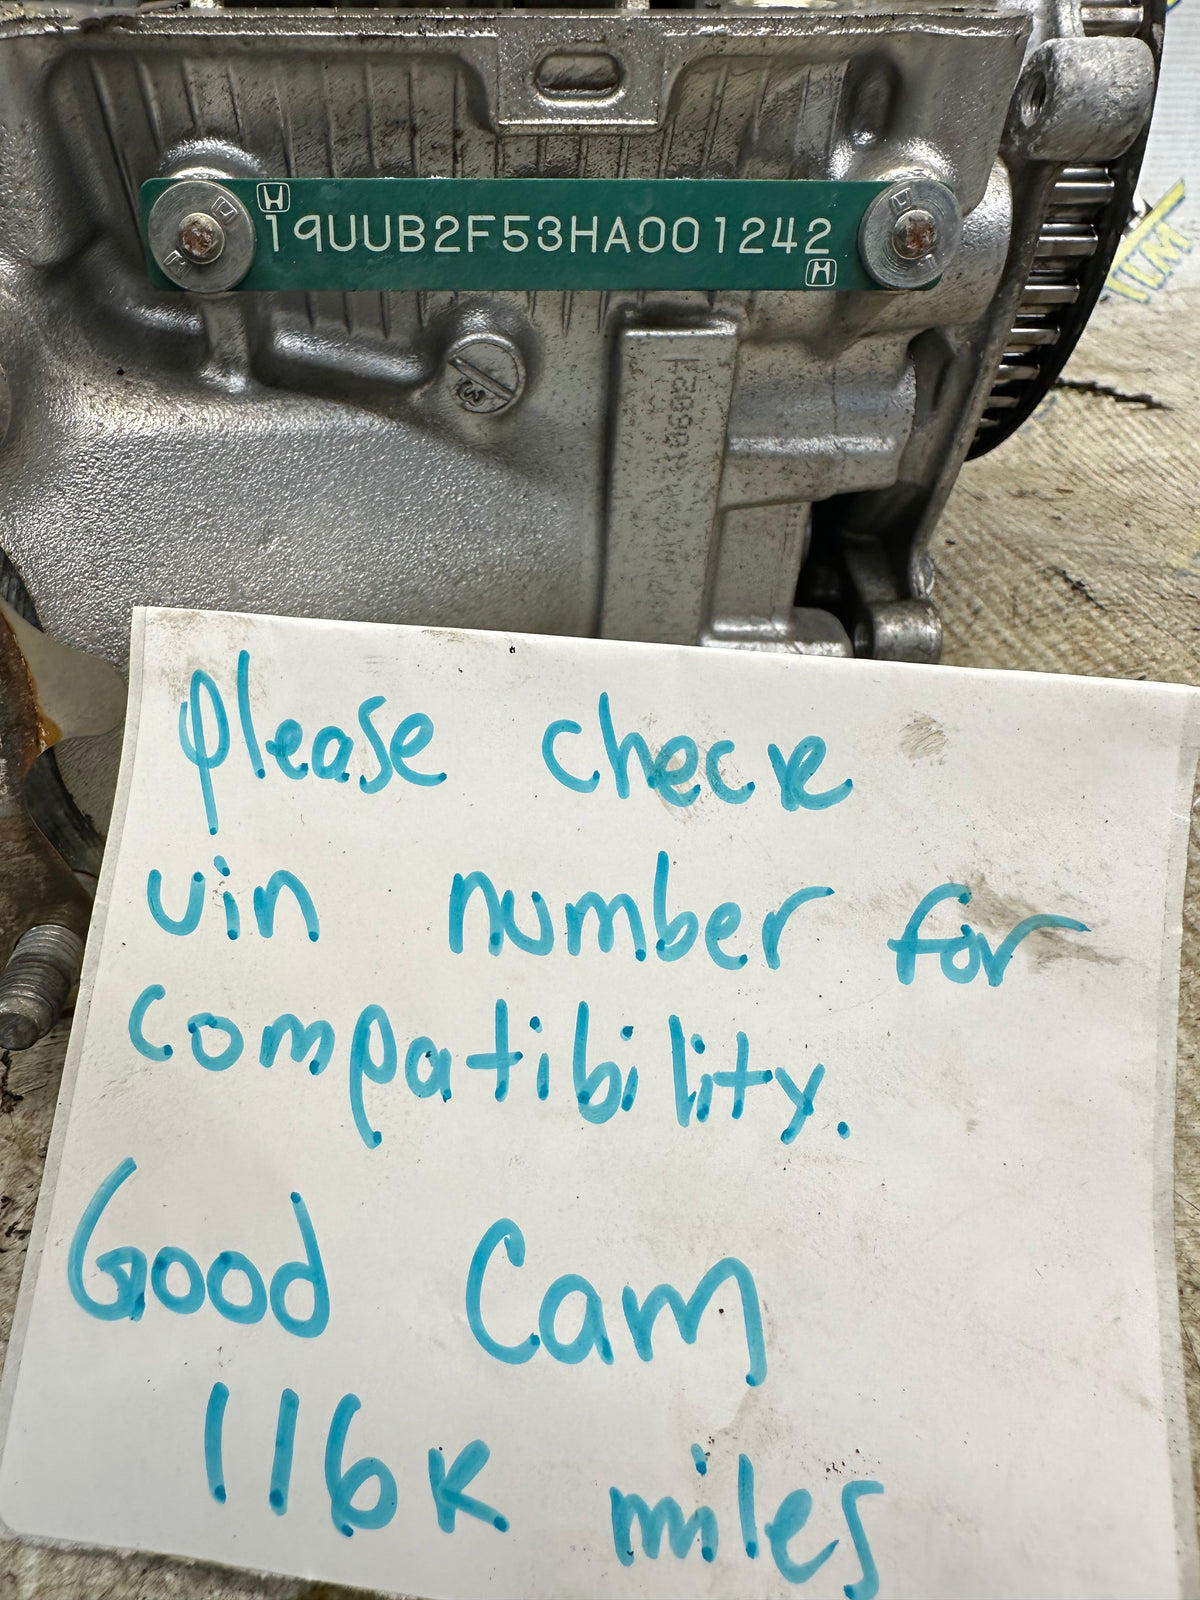 19UUB2F53HA001242
please check
vin number for
compatibility.
Good Cam
116K miles